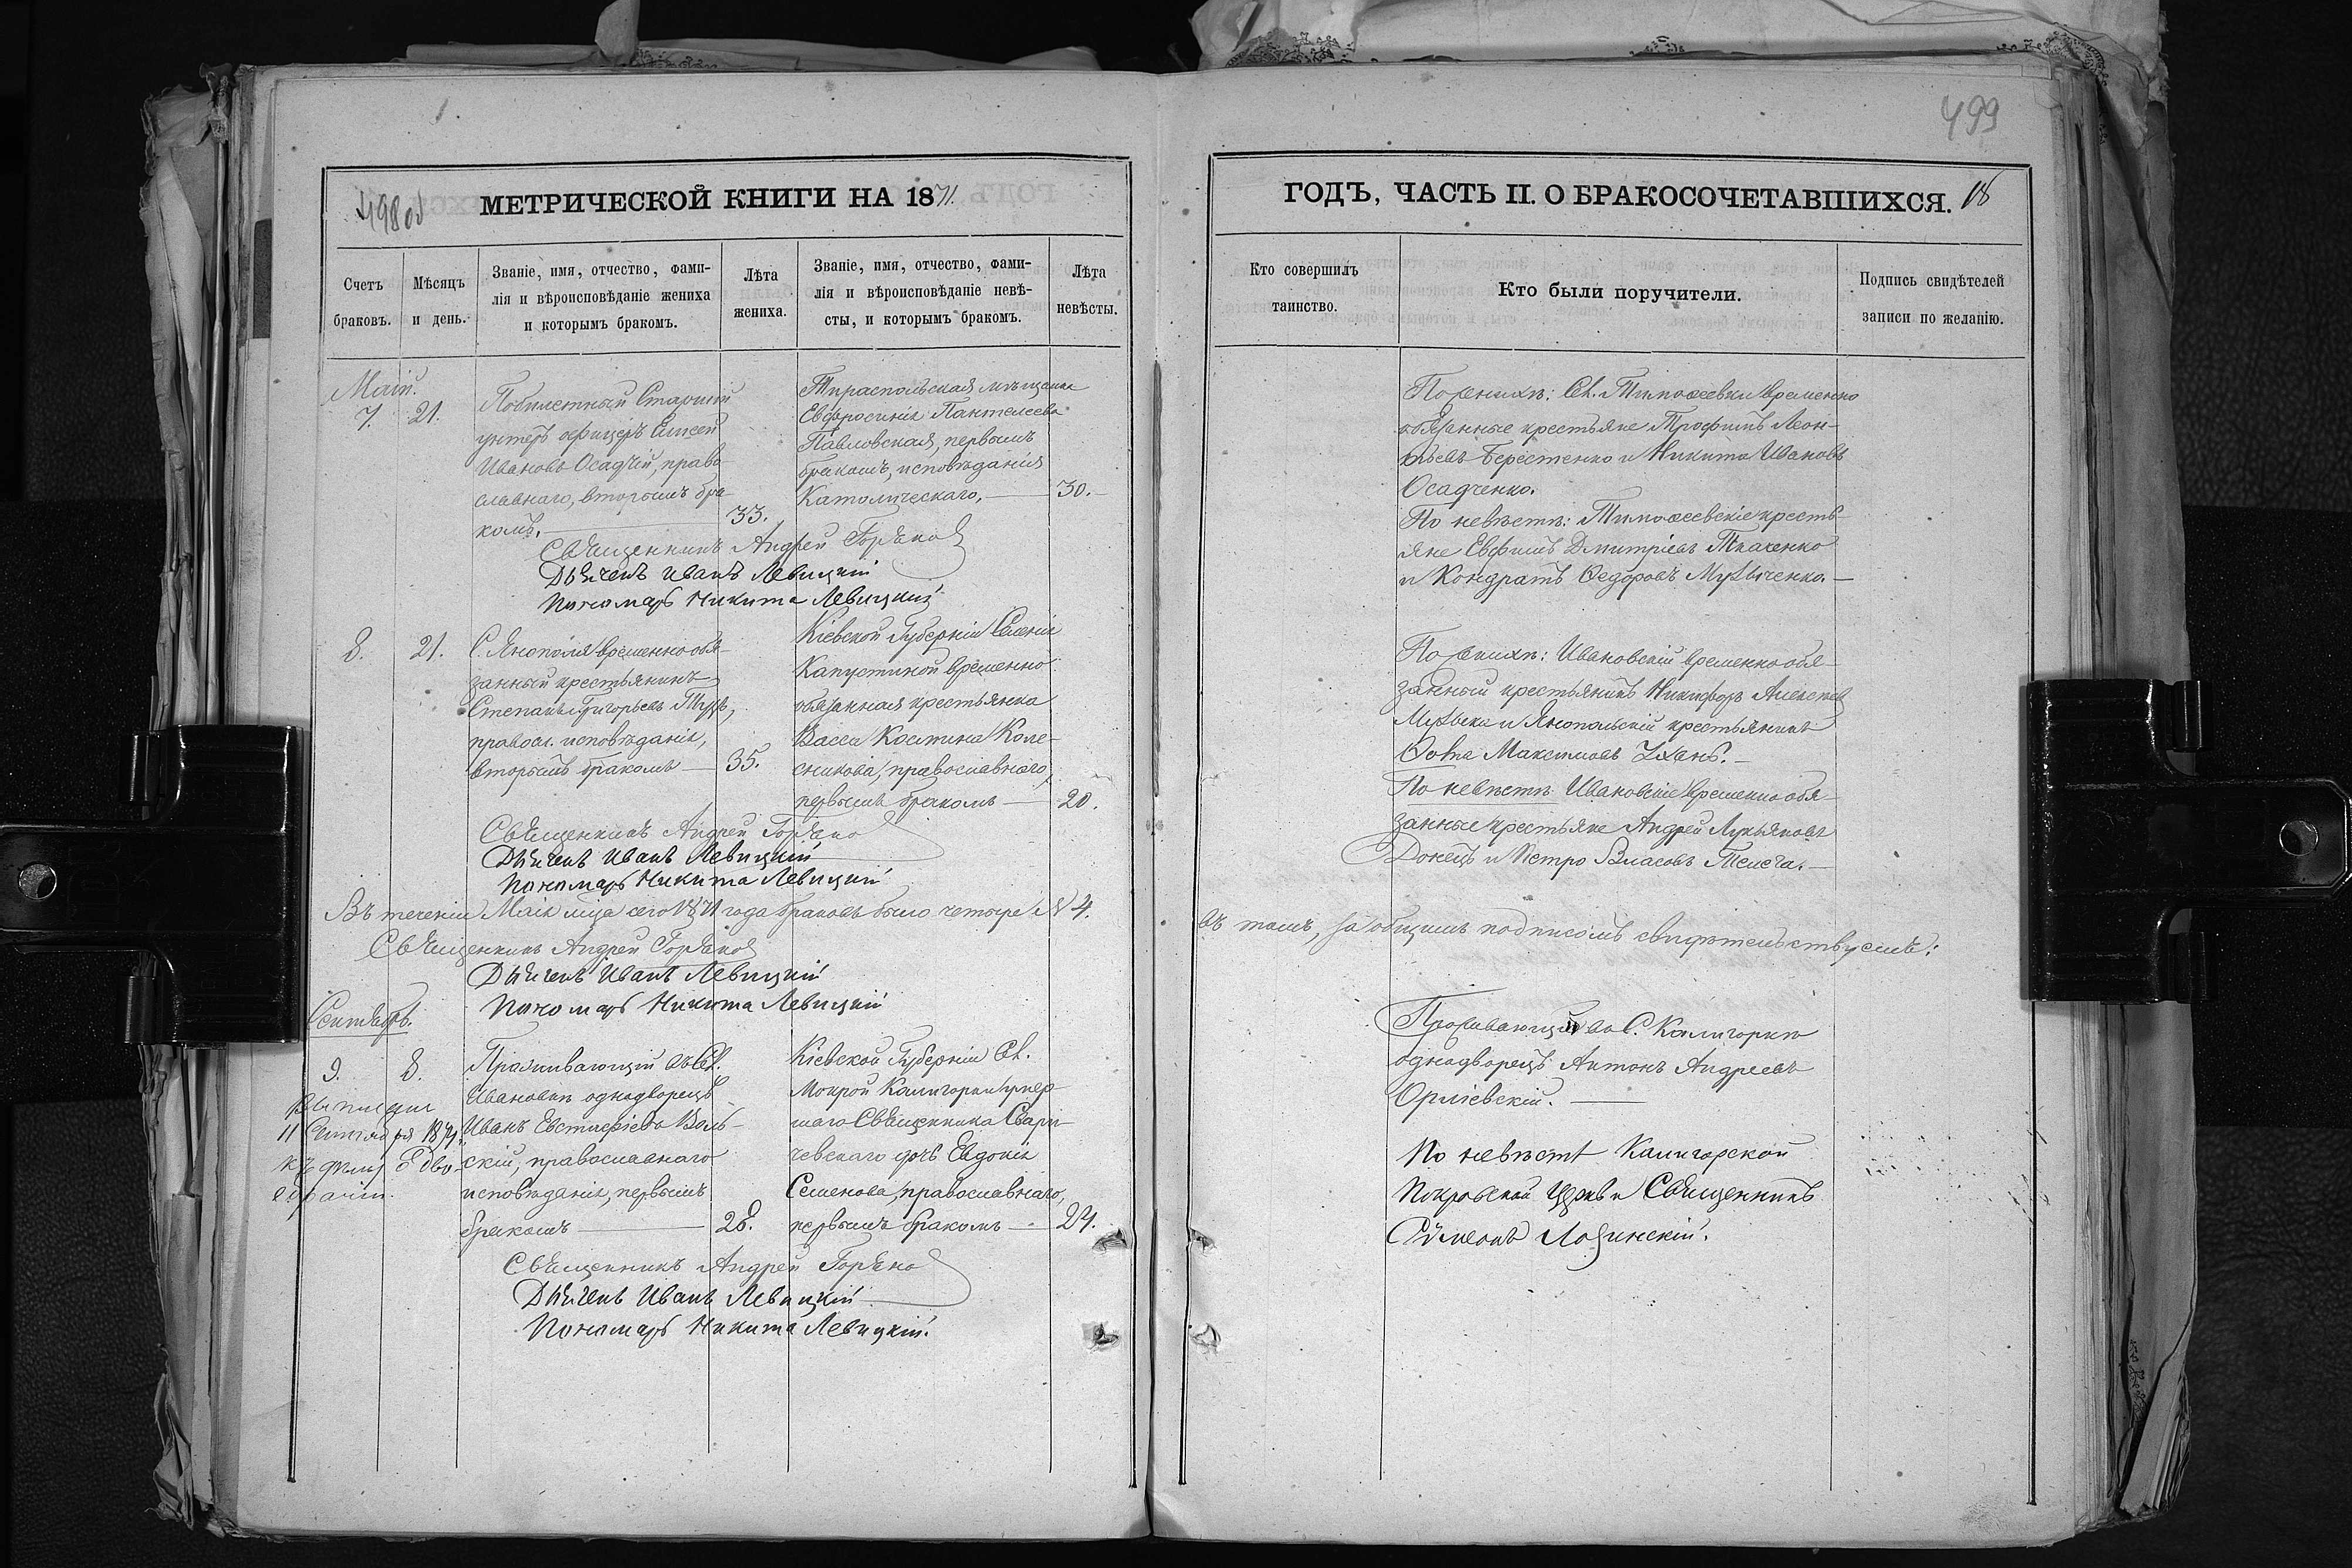 499
498об
МЕТРИЧЕСКОЙ КНИГИ НА 1871.
ГОДЪ, ЧАСТЬ II. О БРАКОСОЧЕТАВШИХСЯ.
Счетъ браковъ.
Мѣсяцъ и день.
Званіе, имя, отчество, фами-
лія и вѣроисповѣданіе жениха
и которымъ бракомъ.
Лѣта жениха.
Званіе, имя, отчество, фами-
лія и вѣроисповѣданіе невѣ-
сты, и которымъ бракомъ.
Лѣта невѣсты.
Кто совершилъ таинство.
Кто были поручители.
Подпись свидѣтелей
записи по желанію.
Маій.
7. 21.
Побилетный Старшій
унтеръ офицеръ Елисей
Ивановъ Осадчій, право
славнаго, вторымъ бра-
комъ. 33.
Тираспольская мѣщанка
Евфросинія Пантелеева
Павловская, первымъ
бракомъ, исповѣданія
Католическаго, 30.
По женихѣ: Сл. Тимофеевки временно
обязанные крестьяне Трофимъ Леон-
тьевъ Берестенко и Никита Ивановъ
Осадченко.
По невѣстѣ: Тимофеевскіе кресть-
яне Евфимъ Дмитріевъ Ткаченко
и Кондратъ Ѳедоровъ Музыченко.
Священникъ Андрей Горʼяно
Дьяченъ Иванъ Левицкій
Пономарь Никита Левицкій
8. 21.
С. Янополя временно обя-
занный крестьянинъ
Степанъ Григорьевъ Туцъ,
правосл. исповѣданія,
вторымъ бракомъ 35.
Кіевской Губерніи Селенія
Капустиной временно
обязанная крестьянка
Васса Костина Коле-
сникова, православнаго,
первымъ бракомъ 20.
По женихѣ: Ивановскій временно обя-
занный крестьянинъ Никифоръ Алексѣев
Музыка и Янопольскій крестьянинъ
Максимовъ
По невѣстѣ Ивановскіе временно обя-
занные крестьяне Андрей Лукьяновъ
Донецъ и Петро Власовъ Телега.
Священникъ Андрей Горʼяно
Дьяченъ Иванъ Левицкій
Пономарь Никита Левицкій
Въ теченіи Маія мца сего 1871 года браковъ было четыре № 4.
въ томъ, за общимъ подписомъ свидѣтельствуемъ:
Священникъ Андрей Горʼяно
Дьяченъ Иванъ Левицкій
Пономарь Никита Левицкій
Сентябрь.
9. 8.
11 Сентября 187
Проживающій въ Сл.
Ивановкѣ однодворецъ
Иванъ Евстафіевъ Воль-
скій, православнаго
исповѣданія, первымъ
бракомъ 28.
Кіевской Губерніи Сл.
Мокрой Калигорки умер-
шаго Священника Свари-
чевскаго дочь Евдокія
Семенова, православнаго,
первымъ бракомъ 24.
Проживающій во С. Калигоркѣ
однодворецъ Антонъ Андреевъ
Орліевскій.
По невѣстѣ Калигорской
Покровской Церкви Священникъ
Симеонъ Лозинскій.
Священникъ Андрей Горʼяно
Дьяченъ Иванъ Левицкій
Пономарь Никита Левицкій.